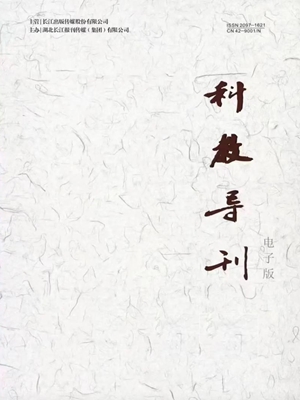 主管|长江出版传媒股份有限公司
主办|湖北长江报刊传媒（集团）有限公司
ISSN 2097-1621
CN 42-9001/N
科教导刊
电子版